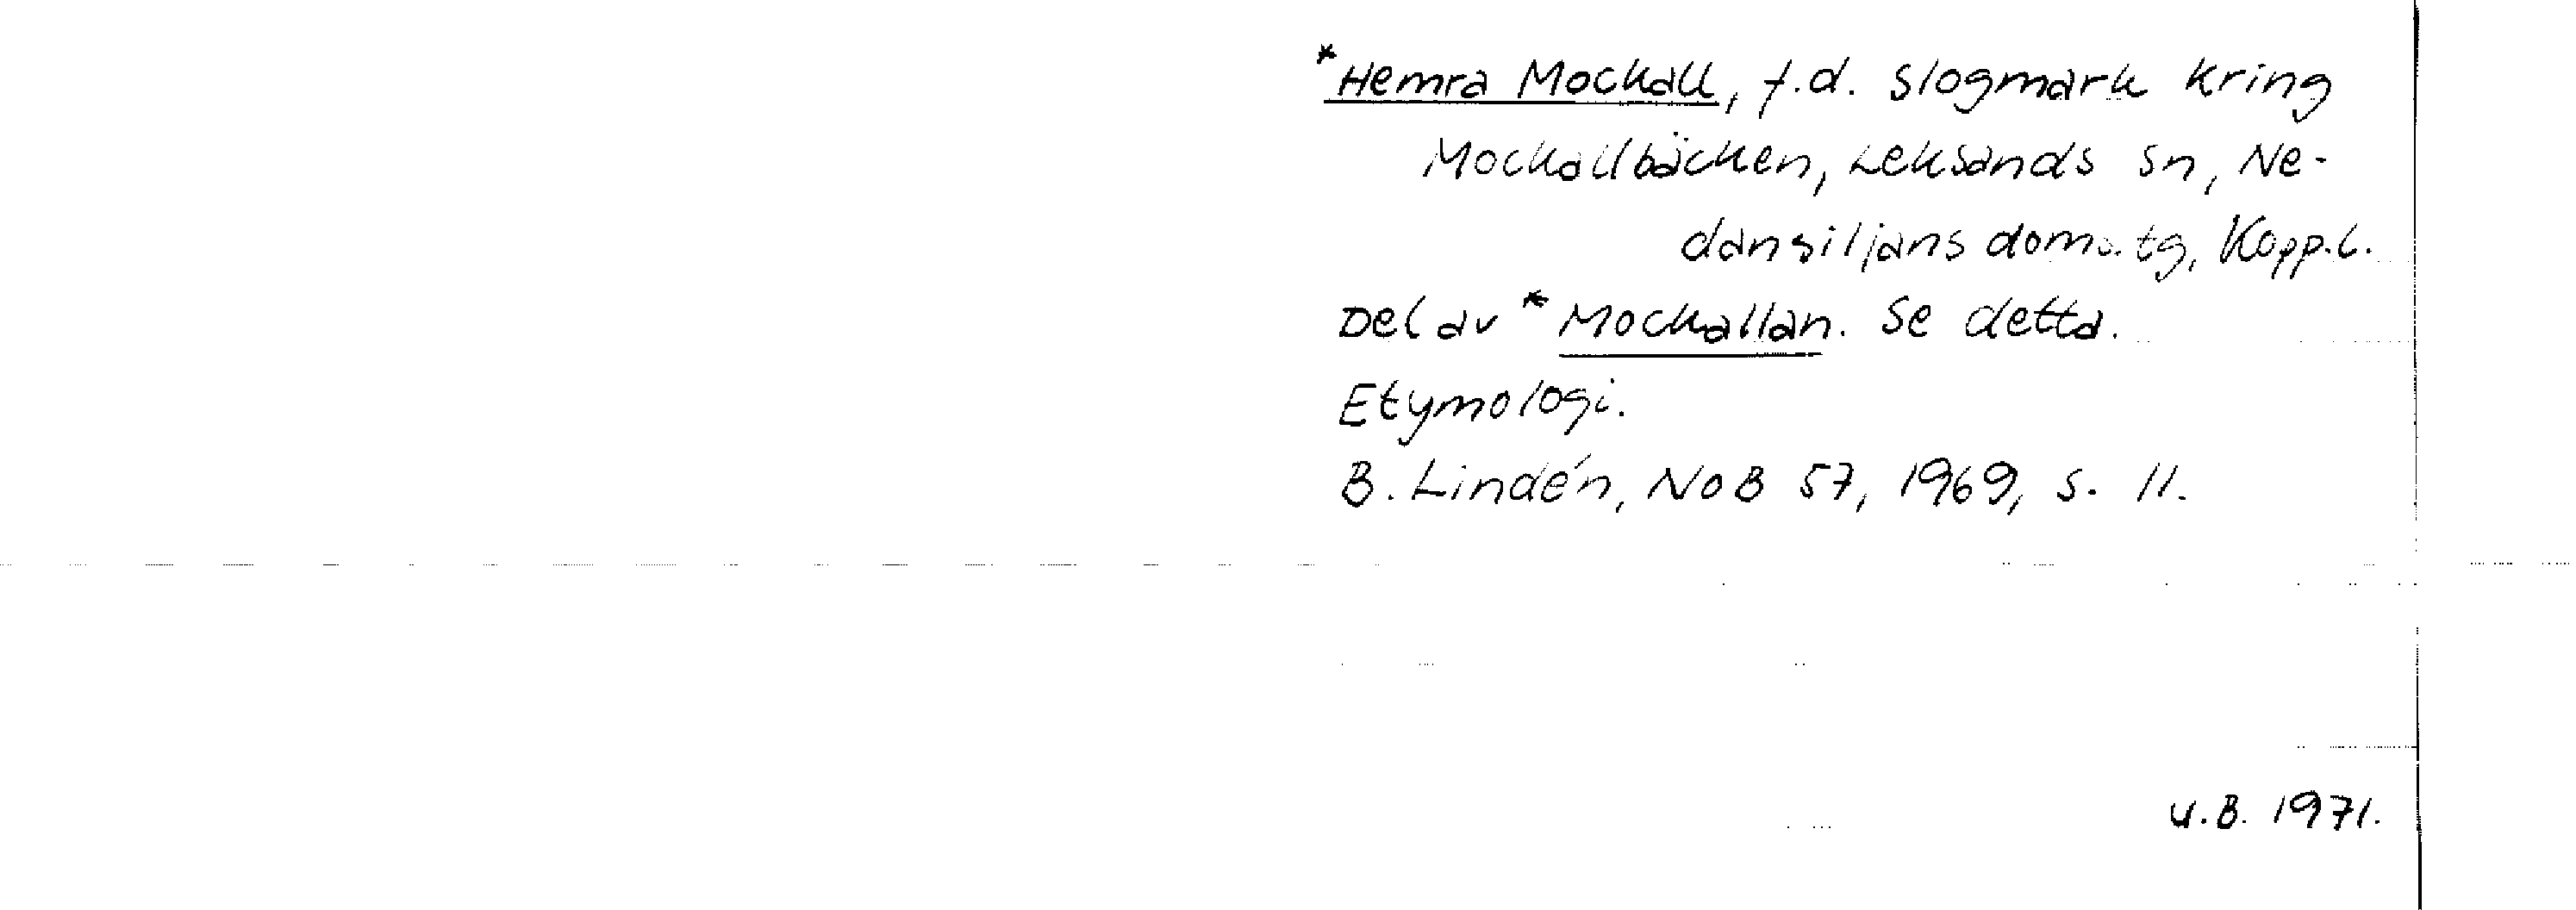 *Hemra Mockall, f.d. slogmark kring
Mockallbäcken, Leksands sn, Ne-
dansiljans doms.tg, Kopp.l.
Del av *Mockallan. Se detta.
Etymologi.
B. Lindén, NoB 57, 1969, s. 11.
U.B. 1971.